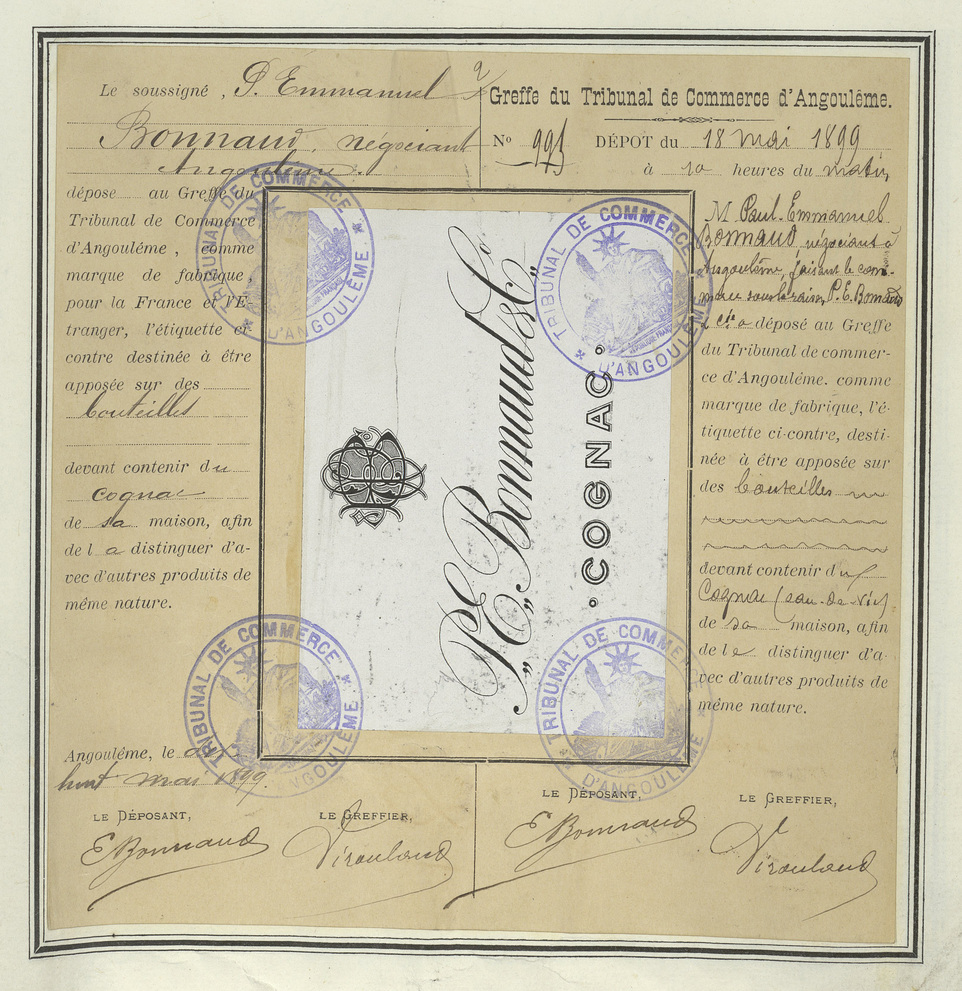 Le soussigné, P. Emmanuel
Bonnaud, négociant
Angoulême.
dépose au Greffe du
Tribunal de Commerce
d'Angoulême, comme
marque de fabrique,
pour la France et l'É-
tranger, l'étiquette ci-
contre destinée à être
apposée sur des
bouteilles
devant contenir du
cognac
de sa maison, afin
de la distinguer d'a-
vec d'autres produits de
même nature.
Angoulême, le dix
huit mai 1899.
LE DÉPOSANT,
E Bonnaud
LE GREFFIER,
Virouland
P. E. Bonnaud & Co
COGNAC
TRIBUNAL DE COMMERCE
D'ANGOULÊME
TRIBUNAL DE COMMERCE
D'ANGOULÊME
TRIBUNAL DE COMMERCE
D'ANGOULÊME
TRIBUNAL DE COMMERCE
D'ANGOULÊME
Greffe du Tribunal de Commerce d'Angoulême.
No 991 DÉPOT du 18 mai 1899
à 10 heures du matin
M Paul-Emmanuel
Bonnaud négociant à
Angoulême, faisant le com-
merce sous la raison P. E. Bonnaud
& Cie a déposé au Greffe
du Tribunal de commer-
ce d'Angoulême. comme
marque de fabrique, l'é-
tiquette ci-contre, desti-
née à être apposée sur
des bouteilles
devant contenir du
Cognac (eau-de-vie)
de sa maison, afin
de le distinguer d'a-
vec d'autres produits de
même nature.
LE DÉPOSANT,
E Bonnaud
LE GREFFIER,
Virouland